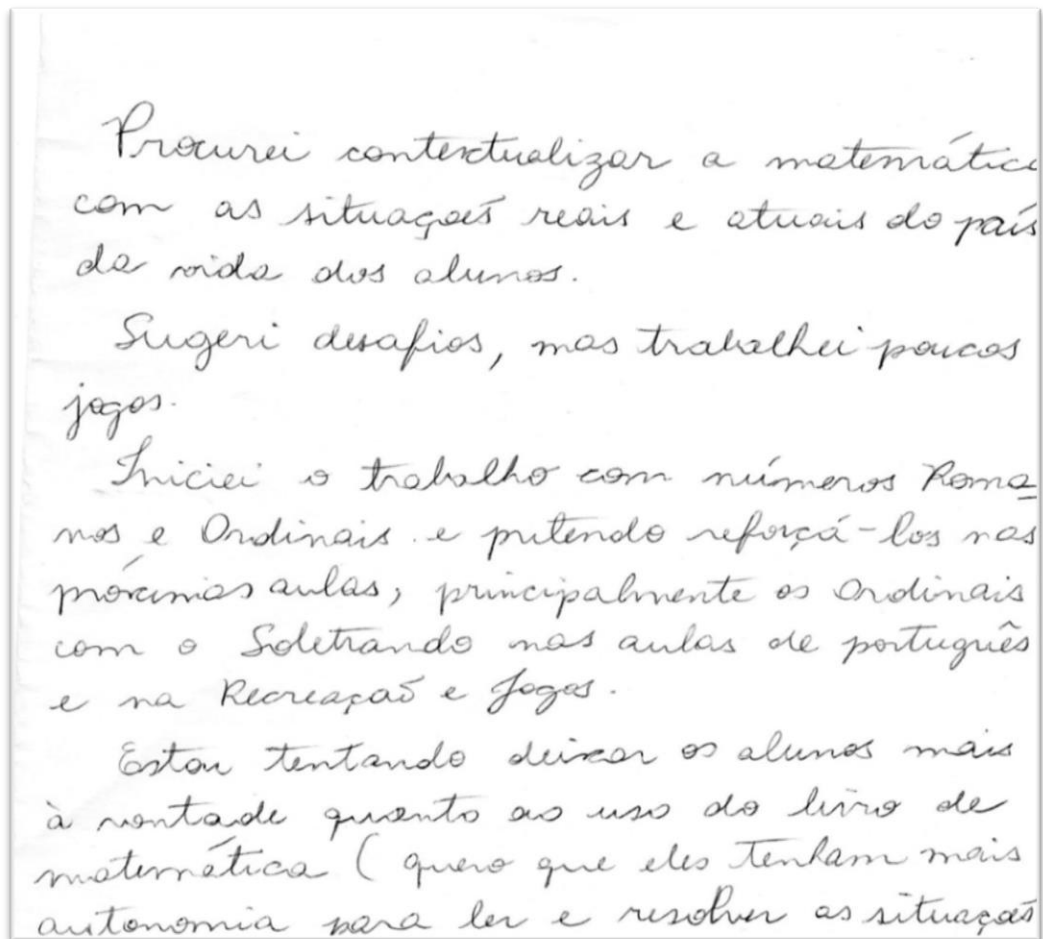 Procurei contextualizar a matemática
com as situações reais e atuais do país
da vida dos alunos.
Sugeri desafios, mas trabalhei poucos
jogos.
Iniciei o trabalho com números Roma-
nos e Ordinais e pretendo reforçá-los nas
próximas aulas, principalmente os Ordinais
com o Soletrando nas aulas de português
e na Recreação e Jogos.
Estou tentando deixar os alunos mais
à vontade quanto ao uso do livro de
matemática (quero que eles tenham mais
autonomia para ler e resolver as situações